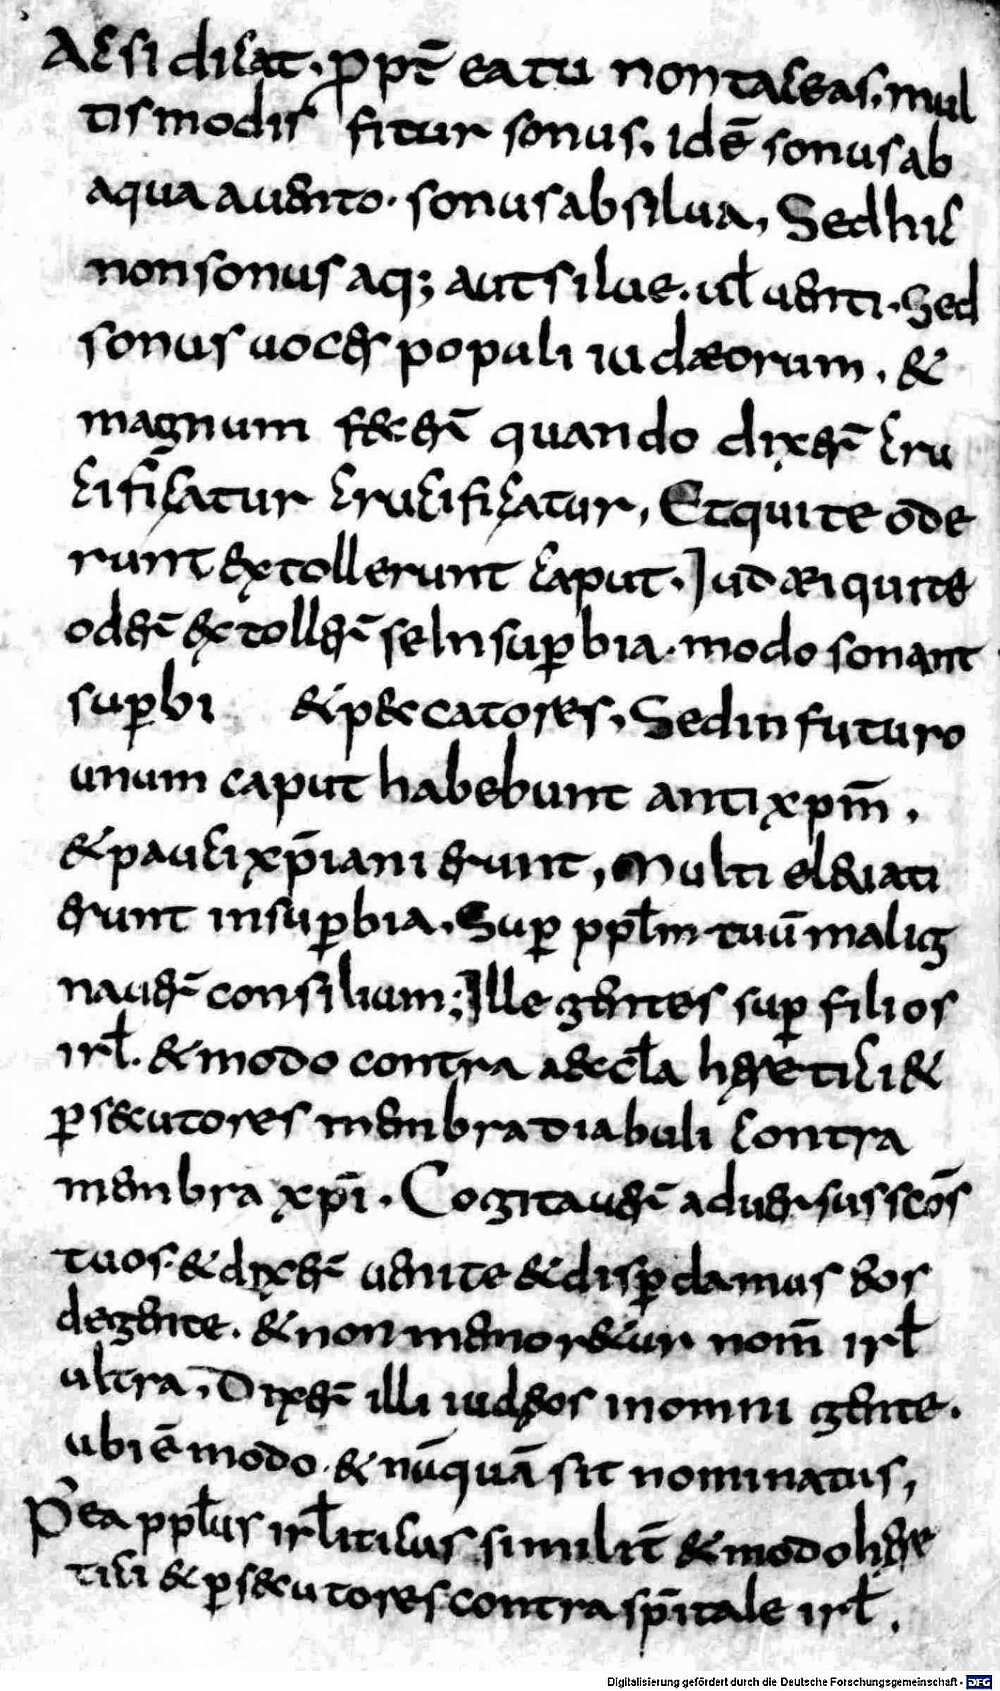 Acsi dicat, ꝓpt̄ ea tu non taceas, mul
tis modis fitur sonus, idē sonus ab
aqua a uento· sonus ab silua, Sed hic
non sonus aq; aut silue· uł uenti· Sed
sonus uoces populi iudæorum, &
magnum fecer̄ quando dixer̄ cru
cificatur crucificatur, Et qui te ode
runt extollerunt caput· Iudæi qui te
oder̄ extoller̄ se In suꝑbia· modo sonant
suꝑbi & peccatores, Sed in futuro
unum caput habebunt antixp̄m̄,
& pauci xp̄iani erunt, Multi eleuati
erunt in suꝑbia, Suꝑ pplm̄ tuū malig
nauer̄ consilium; Ille gentes suꝑ filios
irł· & modo contra aeccła heretici &
ꝑsecutores menbra diabuli contra
menbra xp̄i· Cogitauer̄ aduersus scōs
tuos· & dixer̄ uenite & disꝑdamus eos
de gente· & non memoretur nom̄ irł
ultra, Dixer̄ illi iudęos in omni gente·
ubi ē modo· & nūquā sit nominatus,
P ea pplūs irłiticus similit̄ & modo here
tici & ꝑsecutores contra sp̄itale irł,
Digitalisierung gefördert durch die Deutsche Forschungsgemeinschaft - DFG